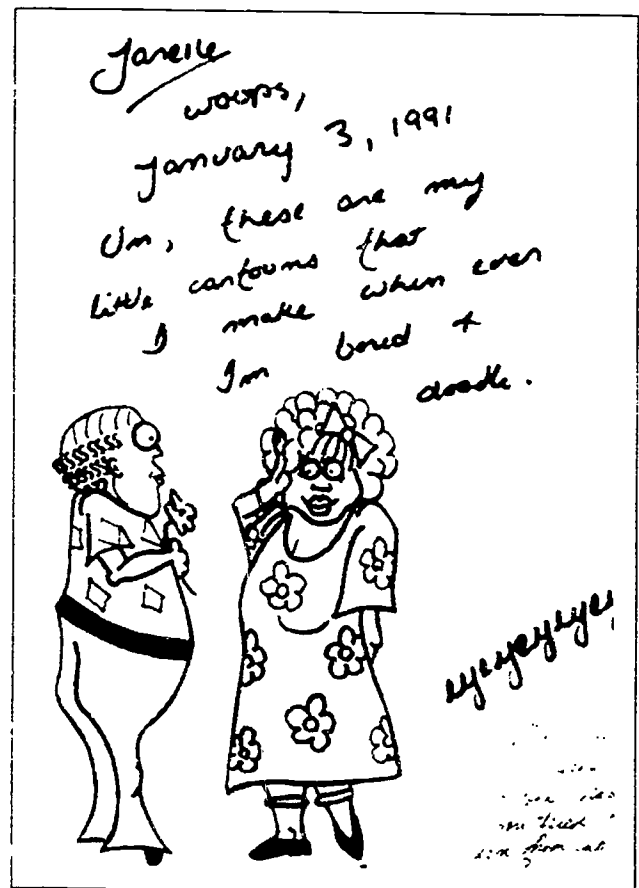 Janelle
woops,
January 3, 1991
Um, these are my
little cartoons that
I make when ever
I'm bored +
doodle.
tired
from